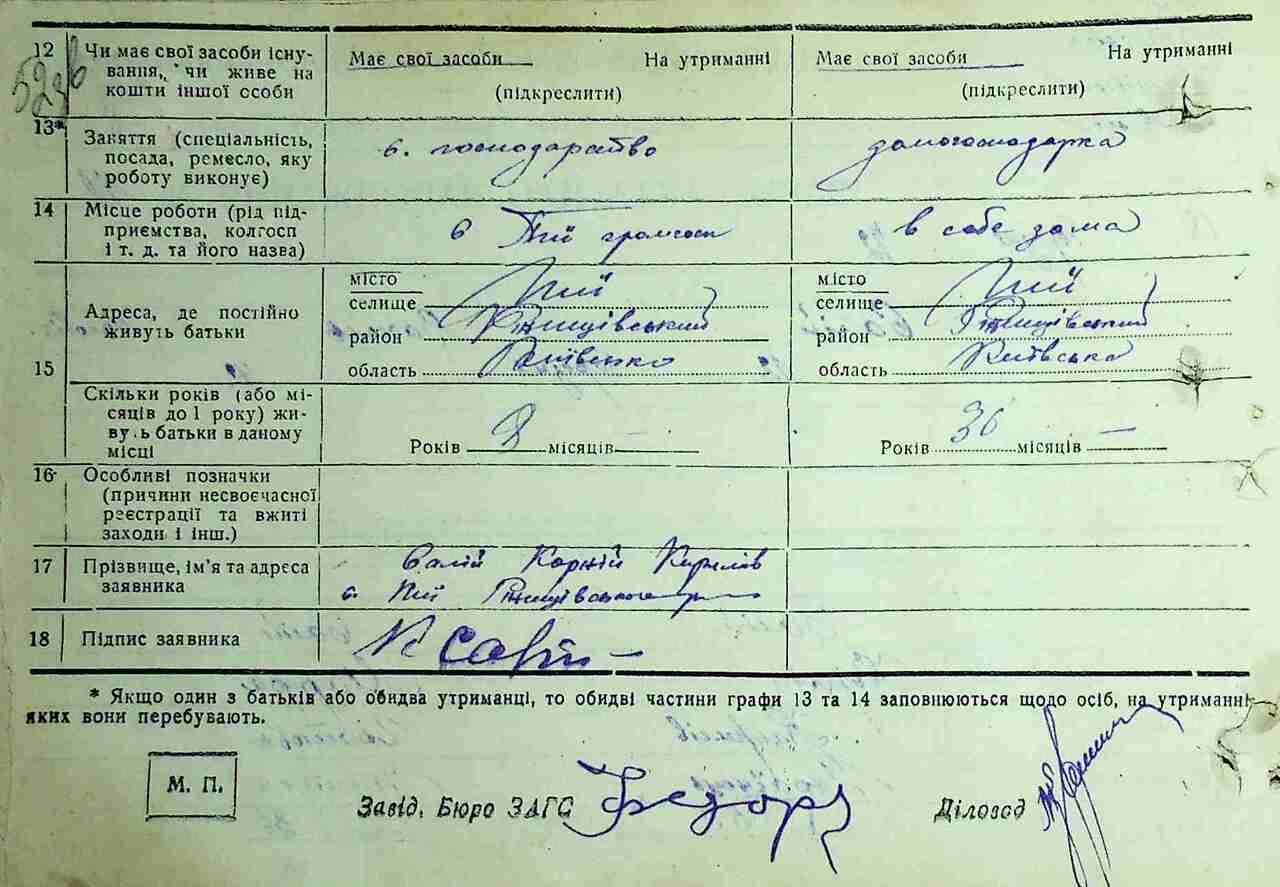 12 Чи має свої засоби існу- Має свої засоби На утриманні Має свої засоби На утриманні
вання, чи живе на
кошти іншої особи (підкреслити) (підкреслити)
13* Заняття (спеціальність,
посада, ремесло, яку с. господарство домогосподарка
роботу виконує)
14 Місце роботи (рід під-
приємства, колгосп в Пії в себе дома
і т. д. та його назва)
15 Адреса, де постійно
живуть батьки
місто
селище Пії
район Ржищівський
область
місто
селище Пії
район Ржищівський
область Київська
Скільки років (або мі-
сяців до 1 року) жи-
вуть батьки в даному
місці Років місяців — Років 36 місяців —
16 Особливі позначки
(причини несвоєчасної
реєстрації та вжиті
заходи і інш.)
17 Прізвище, ім'я та адреса Салій Корній Кирилов
заявника с. Пії Ржищівського
18 Підпис заявника К Салій
* Якщо один з батьків або обидва утриманці, то обидві частини графи 13 та 14 заповнюються щодо осіб, на утриманні
яких вони перебувають.
М. П.
Завід. Бюро ЗАГС Діловод